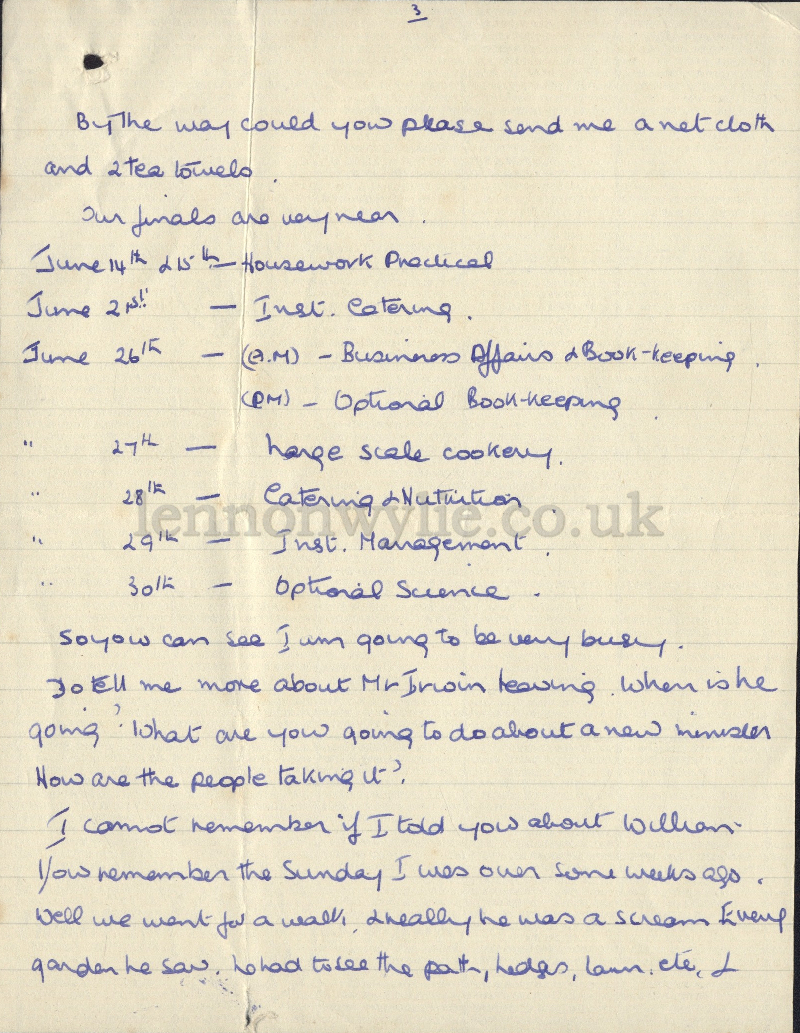 3
By the way could you please send me a net cloth
and 2 tea towels.
Our finals are very near.
June 14th & 15th - Housework Practical
June 21st - Inst. Catering.
June 26th - (A.M) - Business Affairs & Book-keeping.
(PM) - Optional Book-keeping.
" 27th - Large scale cookery.
" 28th - Catering & Nutrition.
lennonwylie.co.uk
" 29th - Inst. Management.
" 30th - Optional Science.
So you can see I am going to be very busy.
Do tell me more about Mr Irwin leaving. When is he
going? What are you going to do about a new minister
How are the people taking it?.
I cannot remember if I told you about William.
You remember the Sunday I was over some weeks ago.
Well we went for a walk, & really he was a scream Every
garden he saw, he had to see the path, hedges, lawn, etc, &